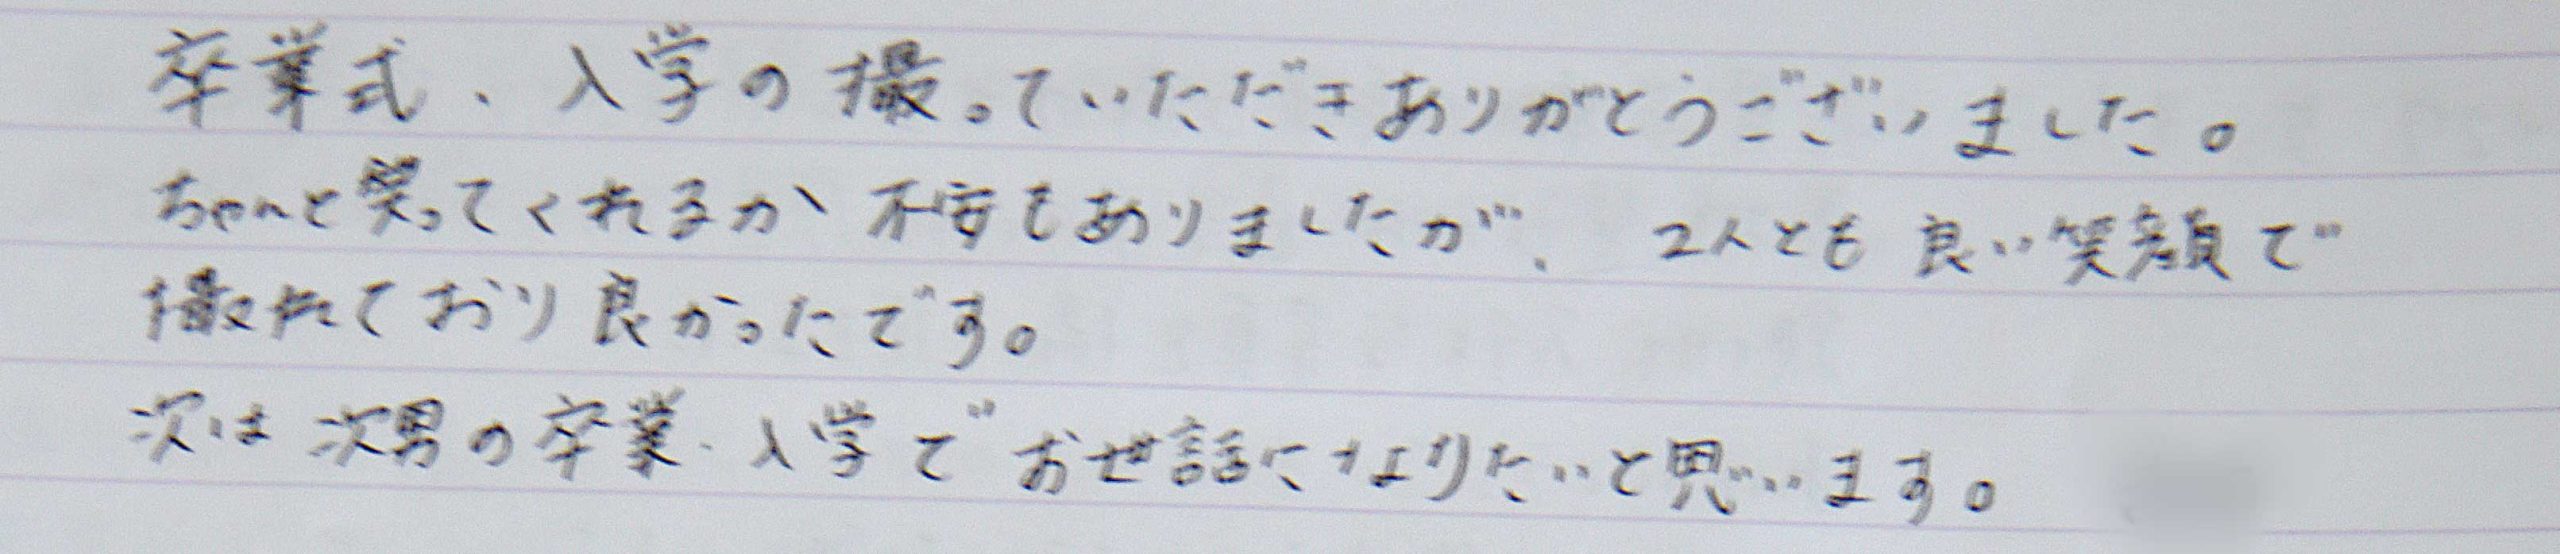 卒業式、入学の撮っていただきありがとうございました。
ちゃんと笑ってくれるか不安もありましたが、2人とも良い笑顔で
撮れており良かったです。
次は次男の卒業・入学でお世話になりたいと思います。